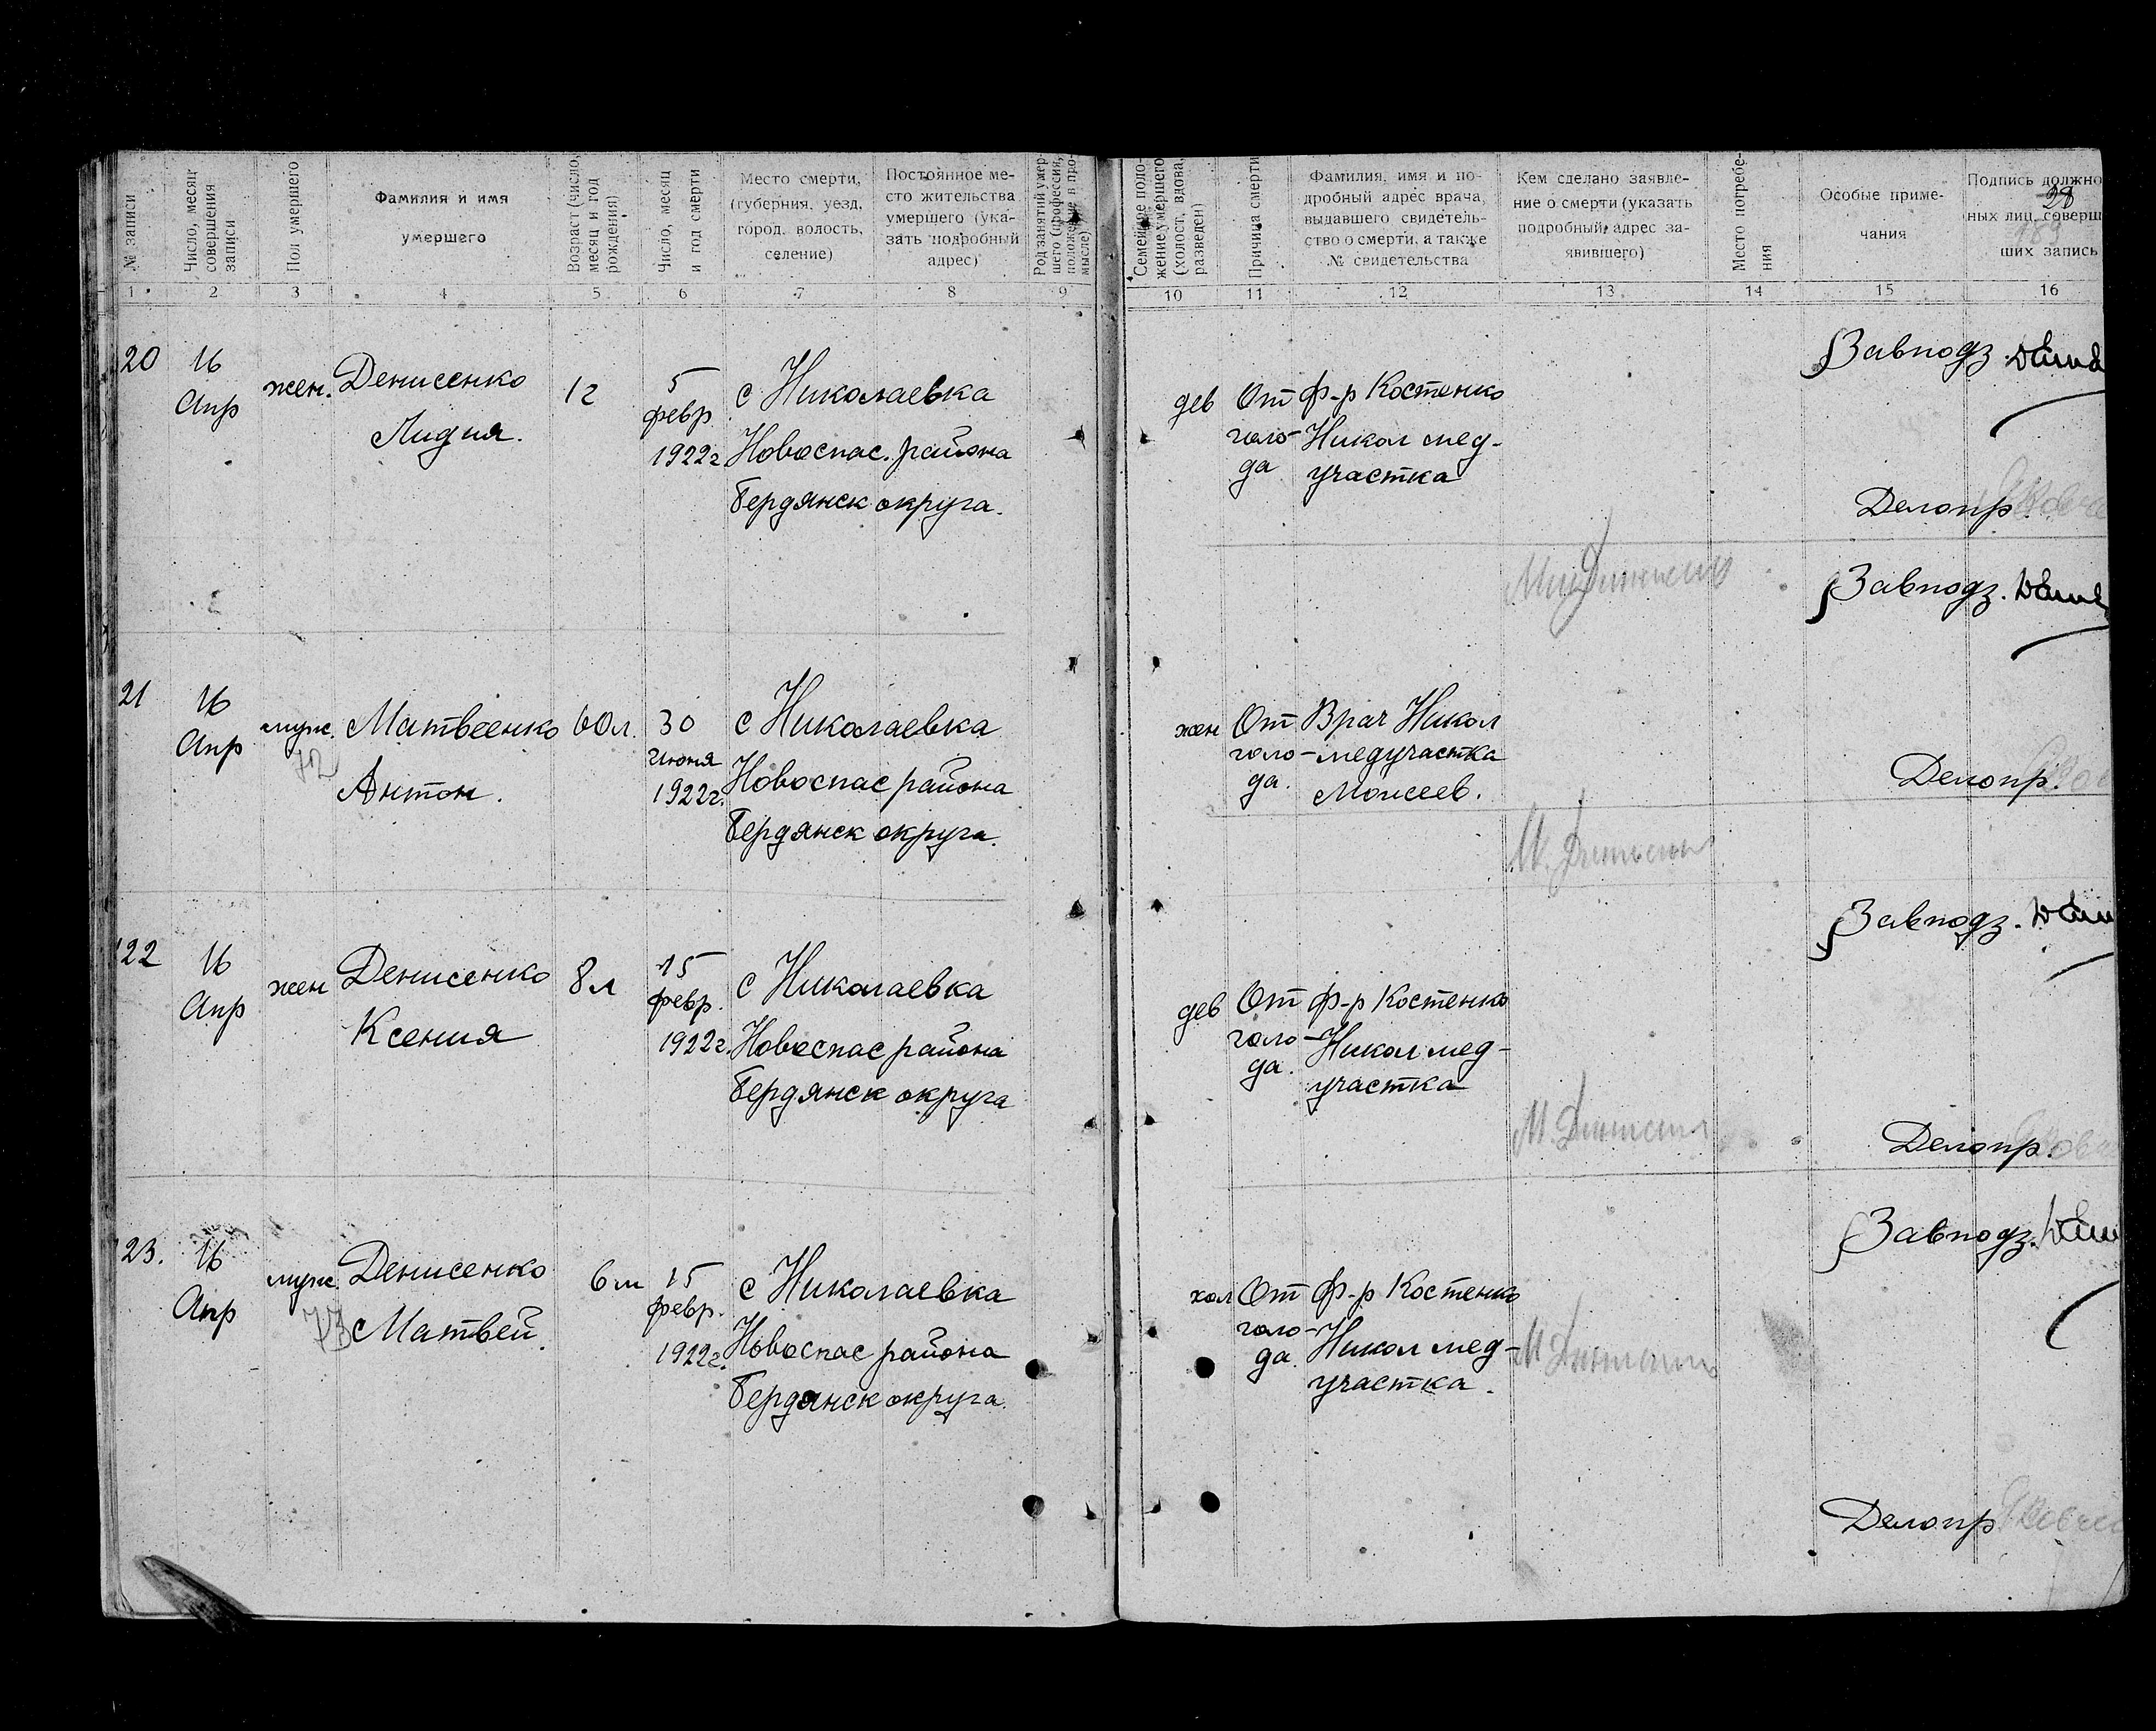 № записи
Число, месяц
совершения
записи
Пол умершего
Фамилия и имя
умершего
Возраст (число,
месяц и год
рождения)
Число, месяц
и год смерти
Место смерти,
(губерния, уезд,
город, волость,
селение)
Постоянное ме-
сто жительства
умершего (ука-
зать подробный
адрес)
Род занятий умер-
шего (профессия,
положение в про-
мысле)
Семейное поло-
жение умершего
(холост, вдова,
разведен)
Причина смерти
Фамилия, имя и по-
дробный адрес врача,
выдавшего свидетель-
ство о смерти, а также
№ свидетельства
Кем сделано заявле-
ние о смерти (указать
подробный адрес за-
явившего)
Место погребе-
ния
Особые приме-
чания
Подпись должно
ных лиц, соверш
ших запись
28
1 2 3 4 5 6 7 8 9 10 11 12 13 14 15 16
20
16
Апр
жен.
Денисенко
Лидия.
1г
5
февр
1922г
с Николаевка
Новоспас. района
Бердянск округа.
дев
От
голо-
да
ф-р Костенко
Никол мед-
участка
Завподз.
Делопр.
21
16
Апр
муж.
72
Матвеенко
Антон.
60л.
30
июня
1922г.
с Николаевка
Новоспас района
Бердянск округа.
жен
От
голо-
да.
Врач Никол
медучастка
Моисеев.
Завподз.
Делопр.
22
16
Апр
жен
Денисенко
Ксения
8л
15
февр.
1922г.
с Николаевка
Новоспас района
Бердянск округа
дев
От
голо-
да.
ф-р Костенко
Никол мед-
участка
Завподз.
Делопр.
23.
16
Апр
муж.
73
Денисенко
Матвей.
6м
15
февр.
1922г.
с Николаевка
Новоспас района
Бердянск округа.
хол
От
голо-
да.
ф-р Костенко
Никол мед-
участка.
Завподз.
Делопр